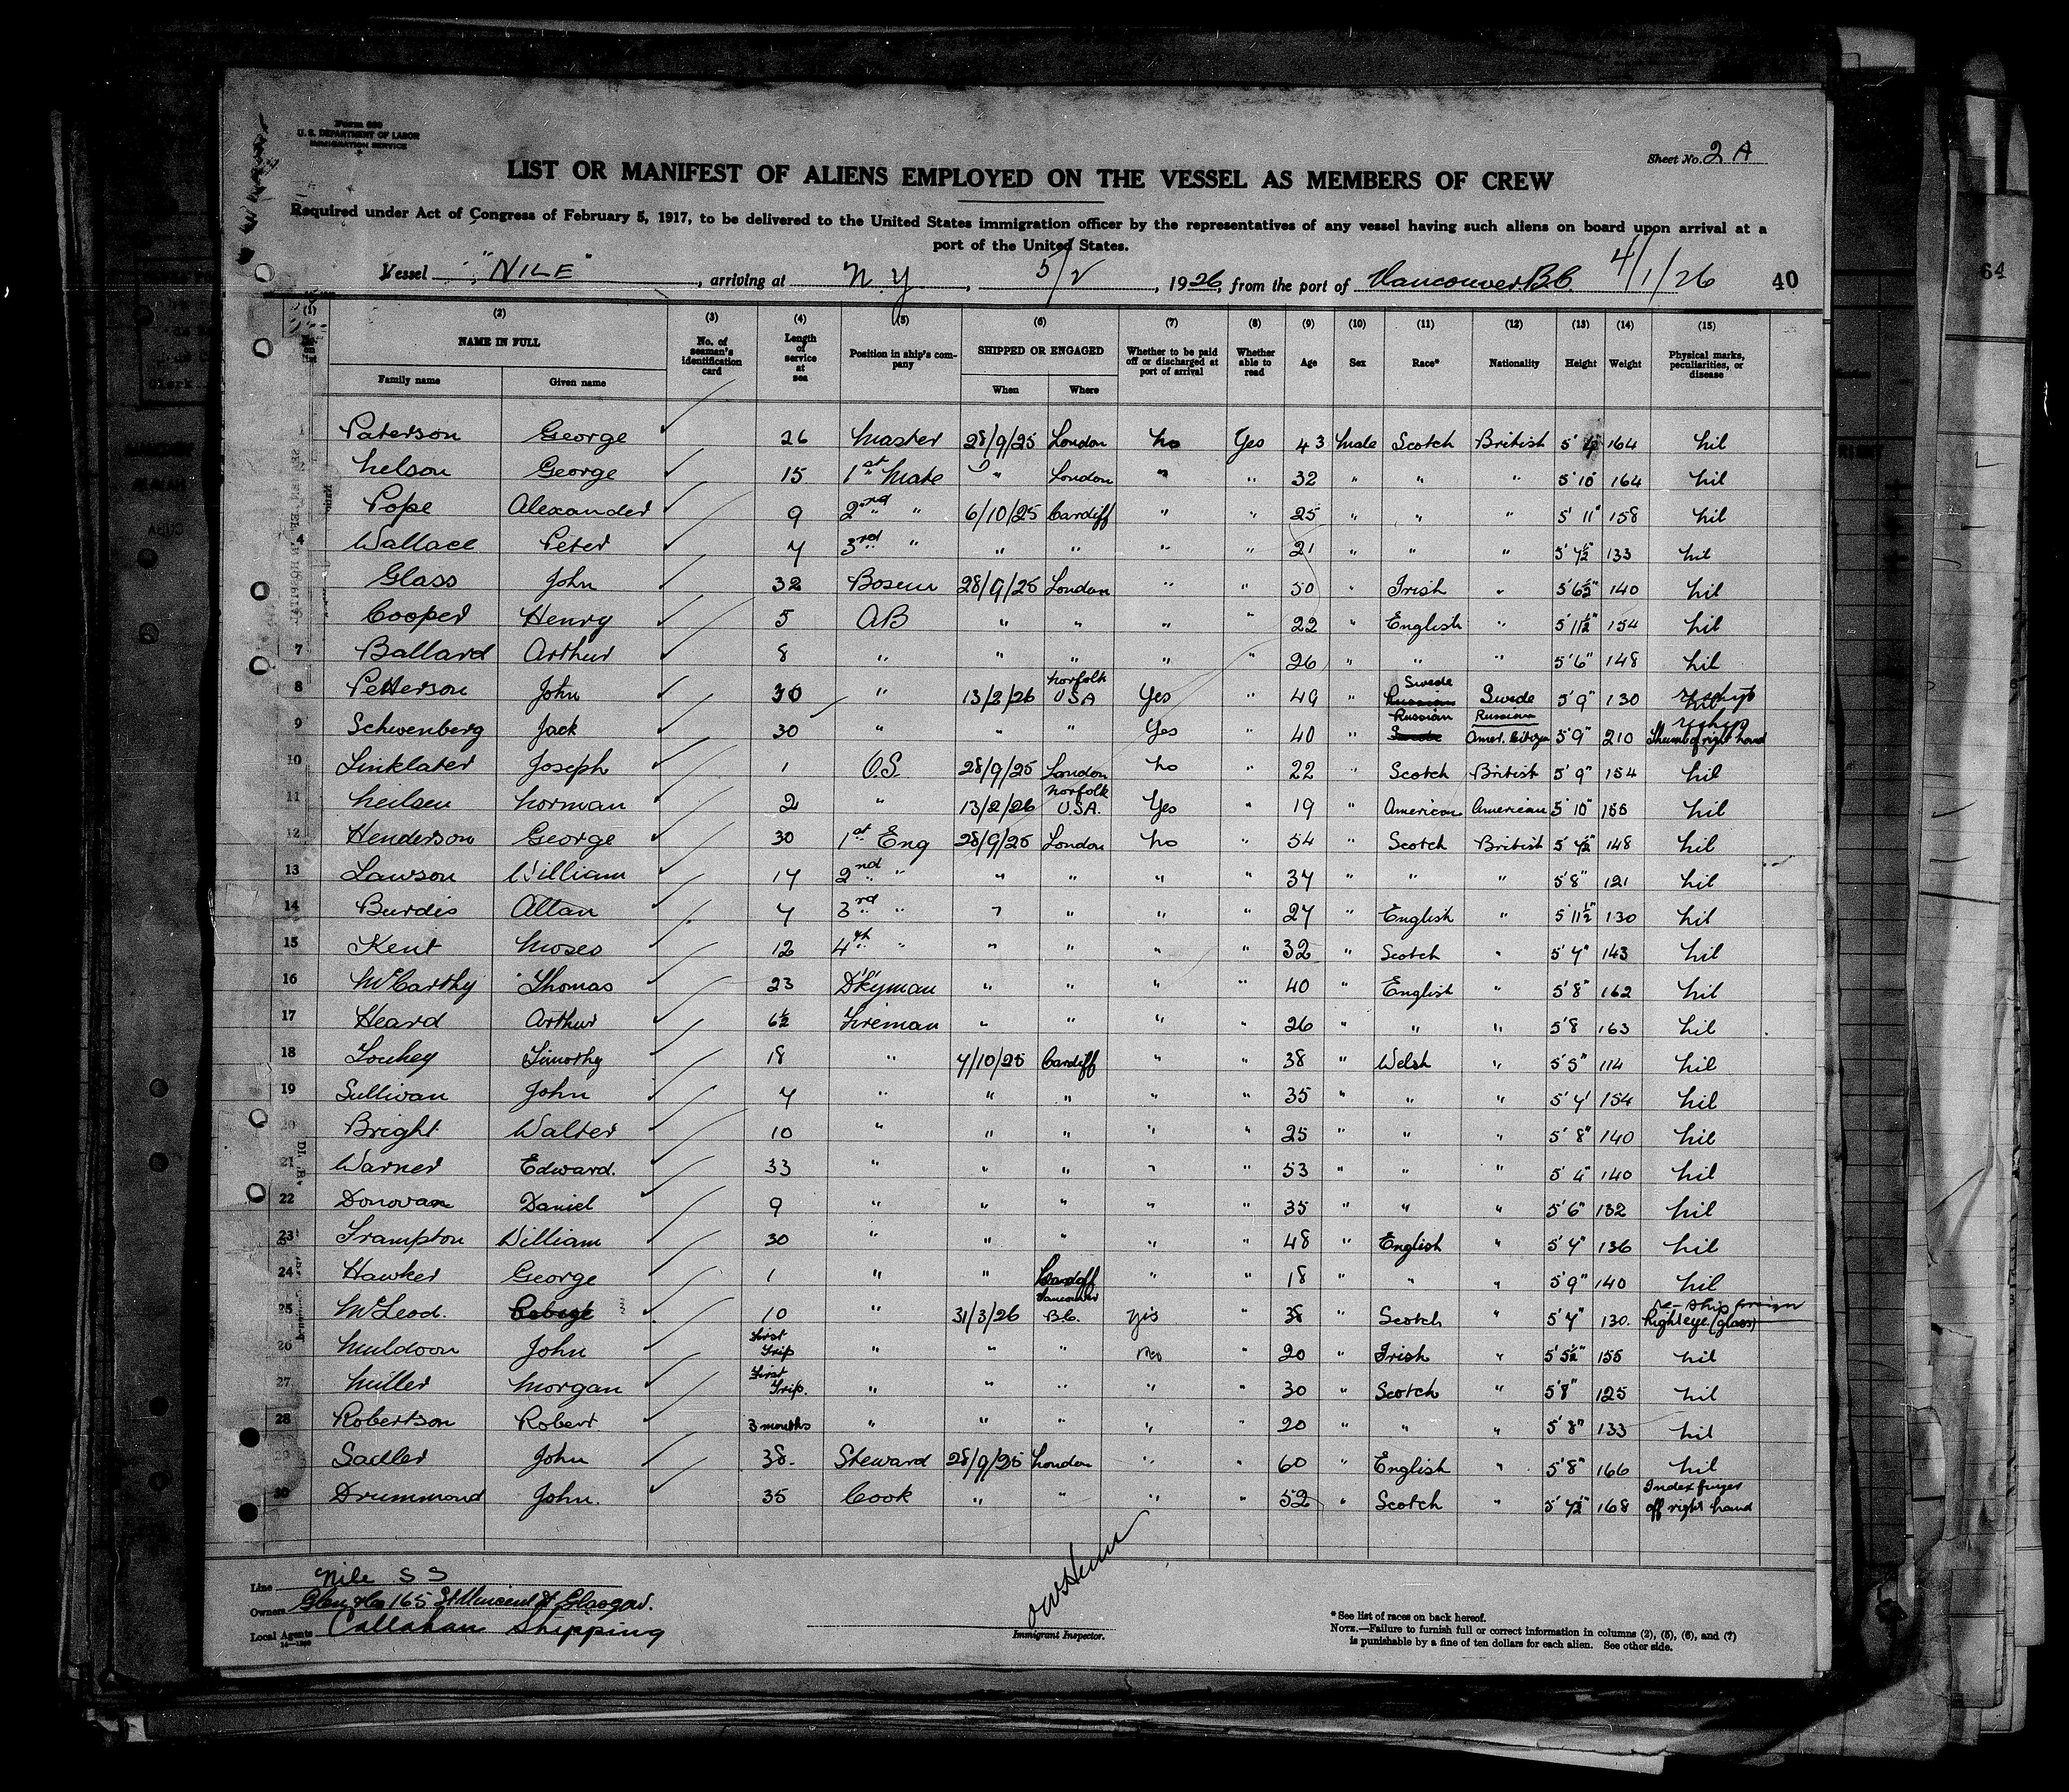 Form 680
U. S. DEPARTMENT OF LABOR
IMMIGRATION SERVICE
Sheet No. 2 A
LIST OR MANIFEST OF ALIENS EMPLOYED ON THE VESSEL AS MEMBERS OF CREW
Required under Act of Congress of February 5, 1917, to be delivered to the United States immigration officer by the representatives of any vessel having such aliens on board upon arrival at a
port of the United States.
Vessel "NILE", arriving at N Y, 5/V, 1926, from the port of Vancouver B.C. 4/1/26 40
64
(1) (2) (3) (4) (5) (6) (7) (8) (9) (10) (11) (12) (13) (14) (15)
NAME IN FULL No. of seaman's identification card Length of service at sea Position in ship's company SHIPPED OR ENGAGED Whether to be paid off or discharged at port of arrival Whether able to read Age Sex Race* Nationality Height Weight Physical marks, peculiarities, or disease
Family name Given name When Where
1 Paterson George 26 Master 28/9/25 London No Yes 43 Male Scotch British 5' 164 Nil
2 Nelson George 15 1st Mate " London " " 32 " " " 5'10" 164 Nil
Pope Alexander 9 2nd " 6/10/25 Cardiff " " 25 " " " 5' 11" 158 Nil
4 Wallace Peter 7 3rd " " " " " 21 " " " 5'7½" 133 Nil
Glass John 32 Bosun 28/9/25 London " " 50 " Irish " 5'6½" 140 Nil
Cooper Henry 5 AB " " " " 22 " English " 5'11½" 154 Nil
7 Ballard Arthur 8 " " " " " 26 " " " 5'6" 148 Nil
8 Petterson John 30 " 13/2/26 Norfolk USA Yes " 49 " Russian Swede Swede 5'9" 130 Nil reship
9 Schwenberg Jack 30 " " " Yes " 40 " Swede Russian Russian Amer. Citizen 5'9" 210 Thumb of right hand reship
10 Linklater Joseph 1 O.S. 28/9/25 London No " 22 " Scotch British 5'9" 154 Nil
11 Neilsen Norman 2 " 13/2/26 Norfolk U.S.A. Yes " 19 " American American 5'10" 155 Nil
12 Henderson George 30 1st Eng 28/9/25 London No " 54 " Scotch British 5'7½" 148 Nil
13 Lawson William 14 2nd " " " " " 37 " " " 5'8" 121 Nil
14 Burdis Allan 7 3rd " " " " " 27 " English " 5'11½" 130 Nil
15 Kent Moses 12 4th " " " " " 32 " Scotch " 5'7" 143 Nil
16 McCarthy Thomas 23 D'kyman " " " " 40 " English " 5'8" 162 Nil
17 Heard Arthur 6½ Fireman " " " " 26 " " " 5'8 163 Nil
18 Timothy 18 " 7/10/25 Cardiff " " 38 " Welsh " 5'5" 114 Nil
19 Sullivan John 7 " " " " " 35 " " " 5'7' 154 Nil
20 Bright Walter 10 " " " " " 25 " " " 5'8" 140 Nil
21 Warner Edward. 33 " " " " " 53 " " " 5'4" 140 Nil
22 Donovan Daniel 9 " " " " " 35 " " " 5'6" 132 Nil
23 Frampton William 30 " " " " " 48 " English " 5'7" 136 Nil
24 Hawker George 1 " " Cardiff " " 18 " " " 5'9" 140 Nil
25 McLeod. George 10 " 31/3/26 Vancouver B.C. Yes " 38 " Scotch " 5'7" 130. Right eye (glass) re-ship foreign
26 Muldoon John First Trip " " " No " 20 " Irish " 5'5½" 155 Nil
27 Miller Morgan First Trip. " " " " " 30 " Scotch " 5'8" 125 Nil
28 Robertson Robert 3 months " " " " " 20 " " " 5'8" 133 Nil
29 Sadler John 38. Steward 28/9/25 London " " 60 " English " 5'8" 166 Nil
30 Drummond John. 35 Cook " " " " 52 " Scotch " 5'7½" 168 Index finger off right hand
Line Nile S S
Owners Glen & Co 165 St Vincent St Glasgow.
Local Agents Callahan Shipping
14—1260
Immigrant Inspector.
* See list of races on back hereof.
NOTE.—Failure to furnish full or correct information in columns (2), (5), (6), and (7)
is punishable by a fine of ten dollars for each alien. See other side.